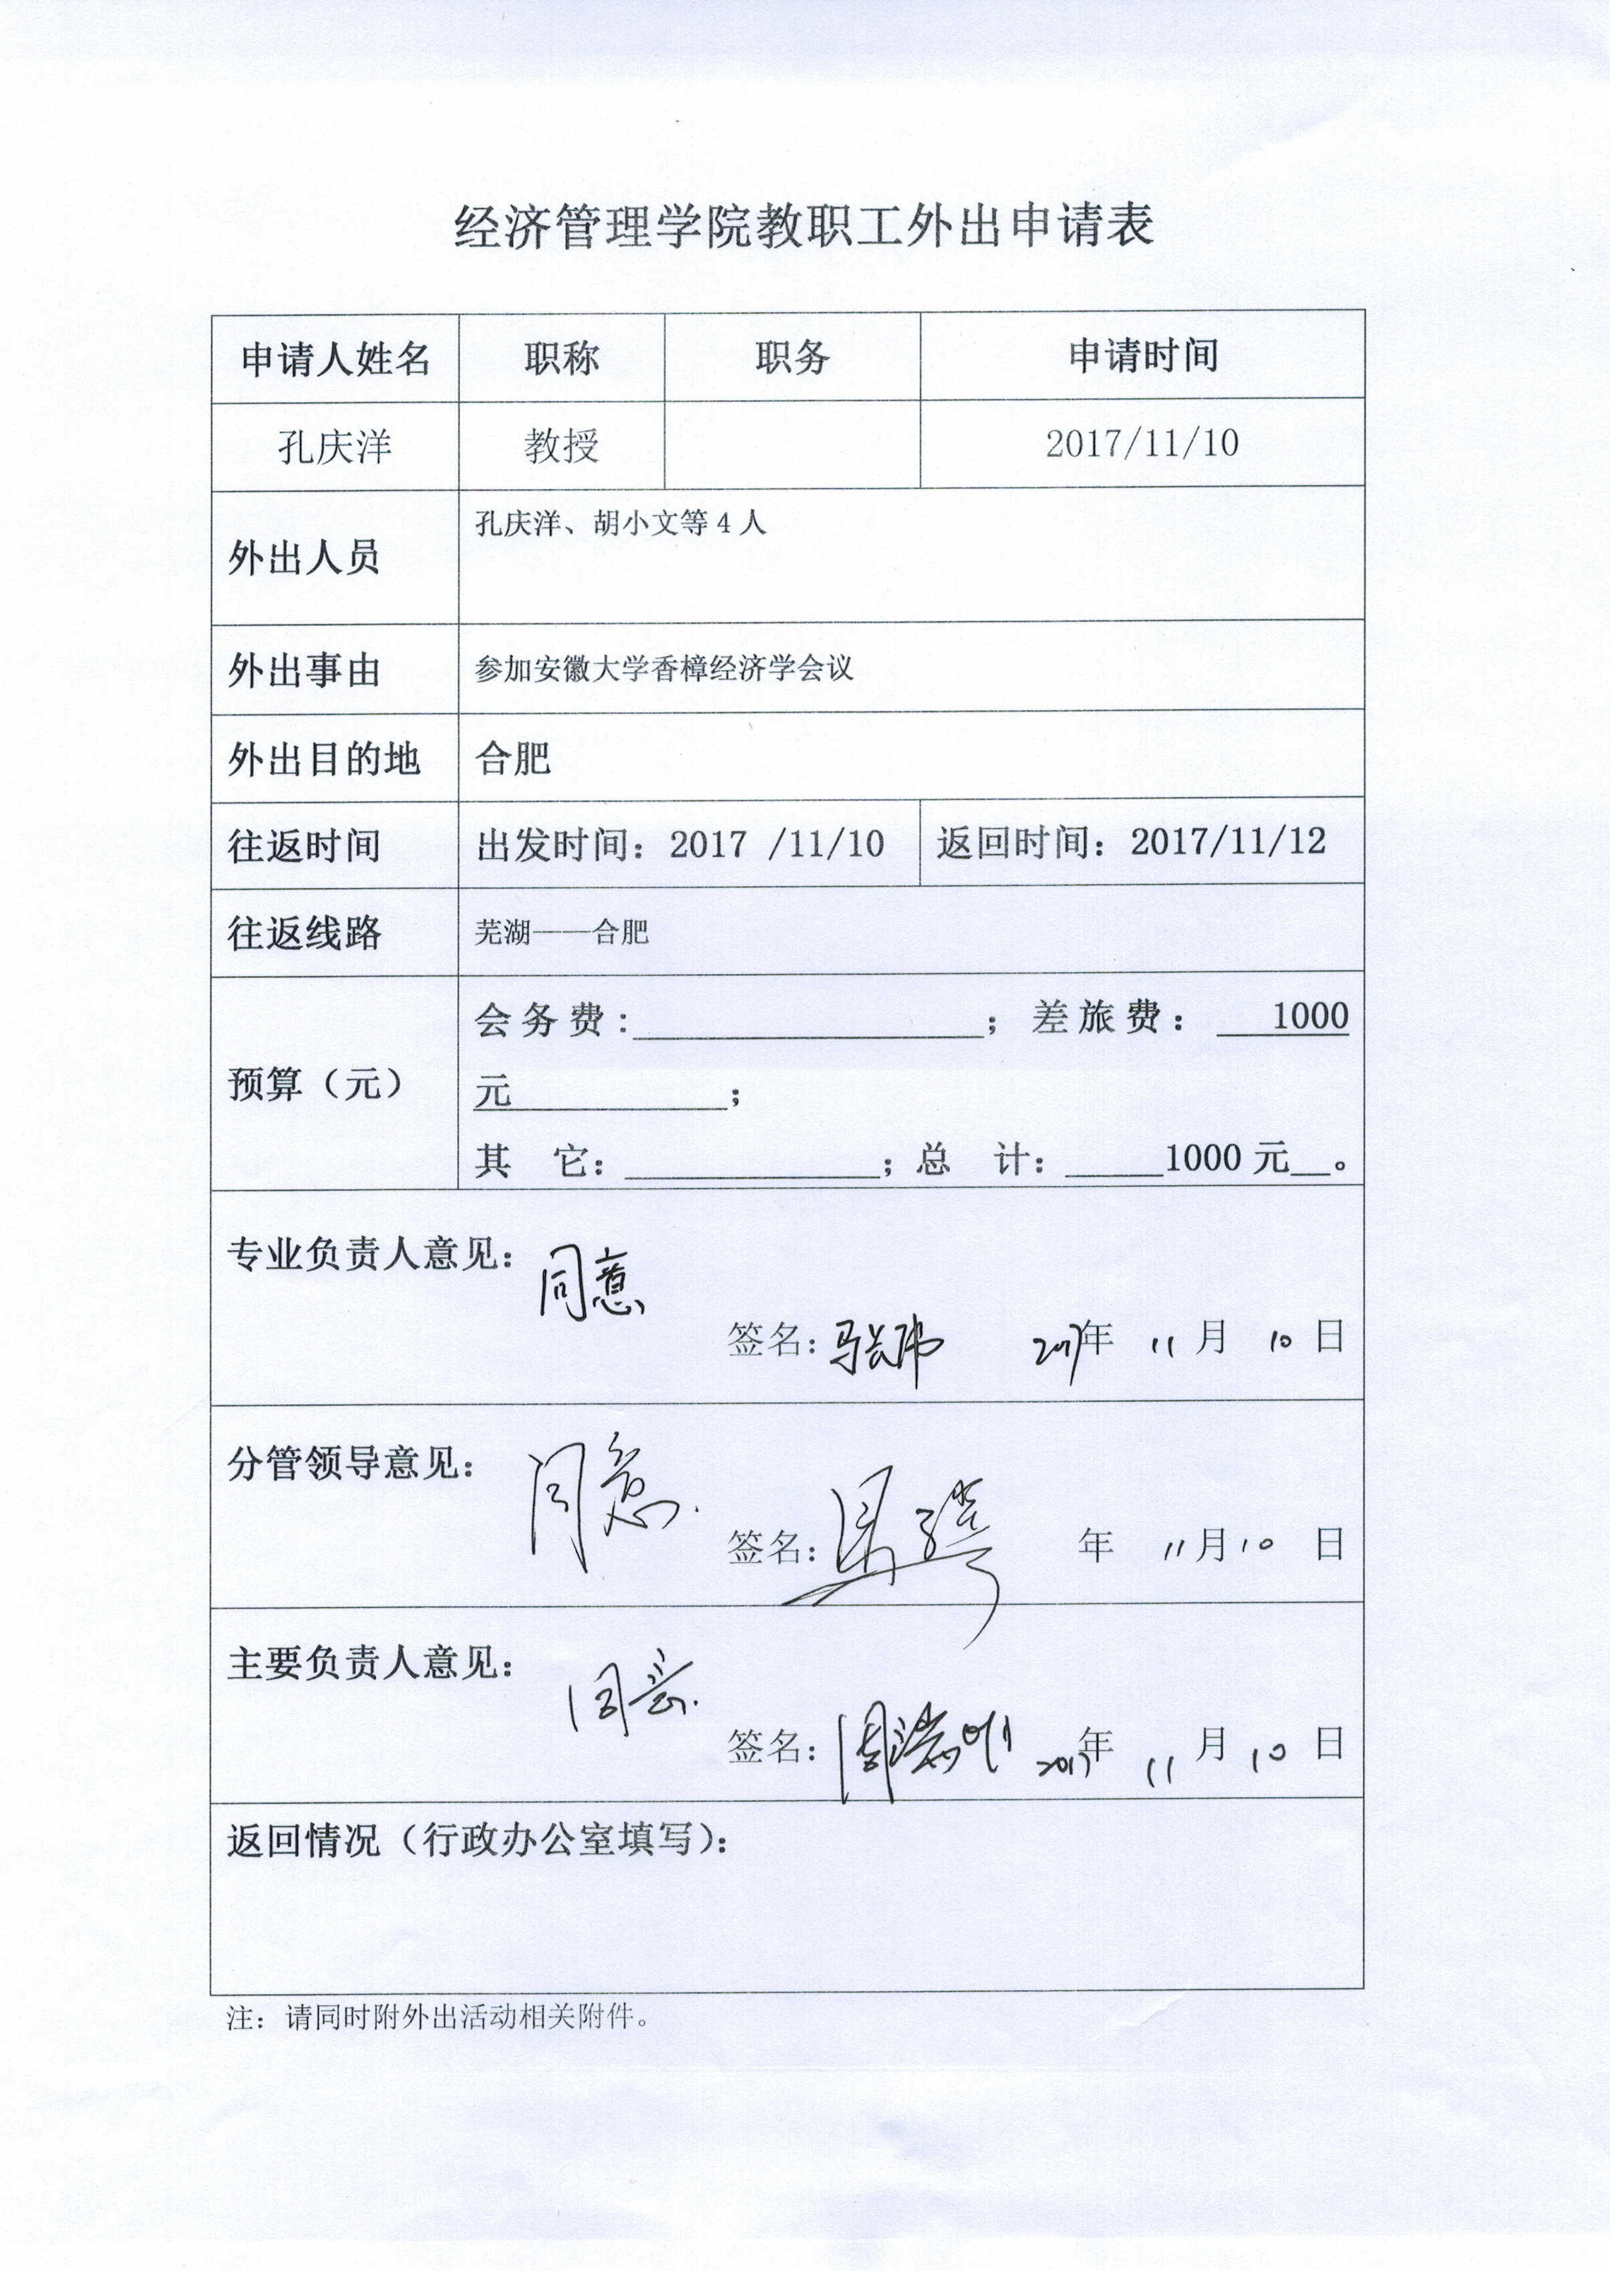 经济管理学院教职工外出申请表
申请人姓名 职称 职务 申请时间
孔庆洋 教授 2017/11/10
外出人员 孔庆洋、胡小文等 4 人
外出事由 参加安徽大学香樟经济学会议
外出目的地 合肥
往返时间 出发时间：2017 /11/10 返回时间：2017/11/12
往返线路 芜湖——合肥
预算（元） 会务费：________；差旅费：__1000
元________；
其 它：________；总 计：____1000 元__。
专业负责人意见：同意
签名： 2017年 11 月 10 日
分管领导意见：同意.
签名： 年 11月10 日
主要负责人意见：同意.
签名： 2017年 11 月 10 日
返回情况（行政办公室填写）：
注：请同时附外出活动相关附件。